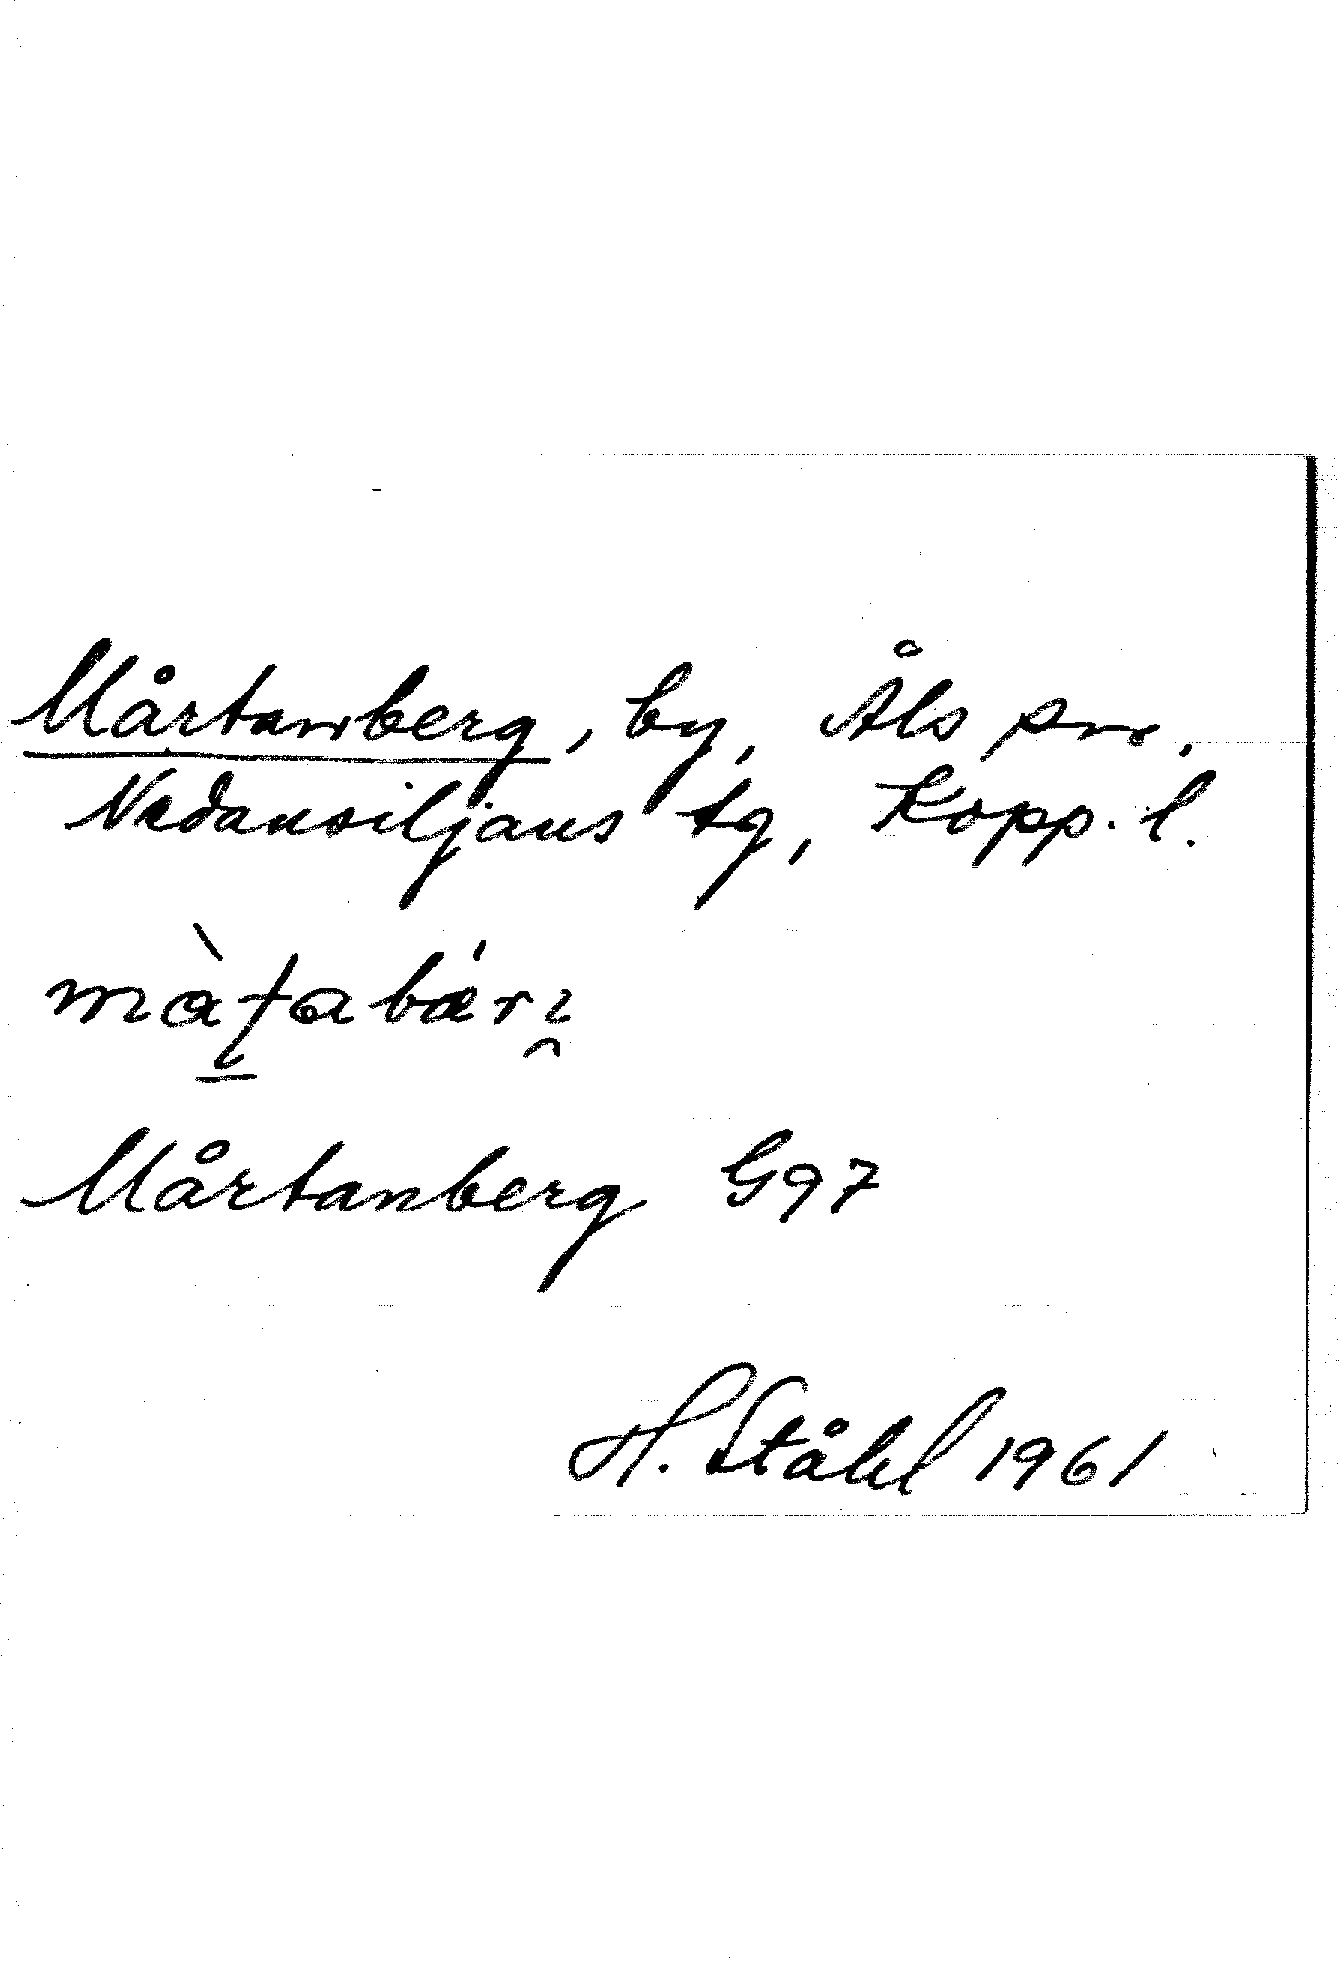 Mårtanberg, by, Åls sn.
Nedansiljans tg, Kopp. l.
Mårtanberg G97
H. Ståhl 1961